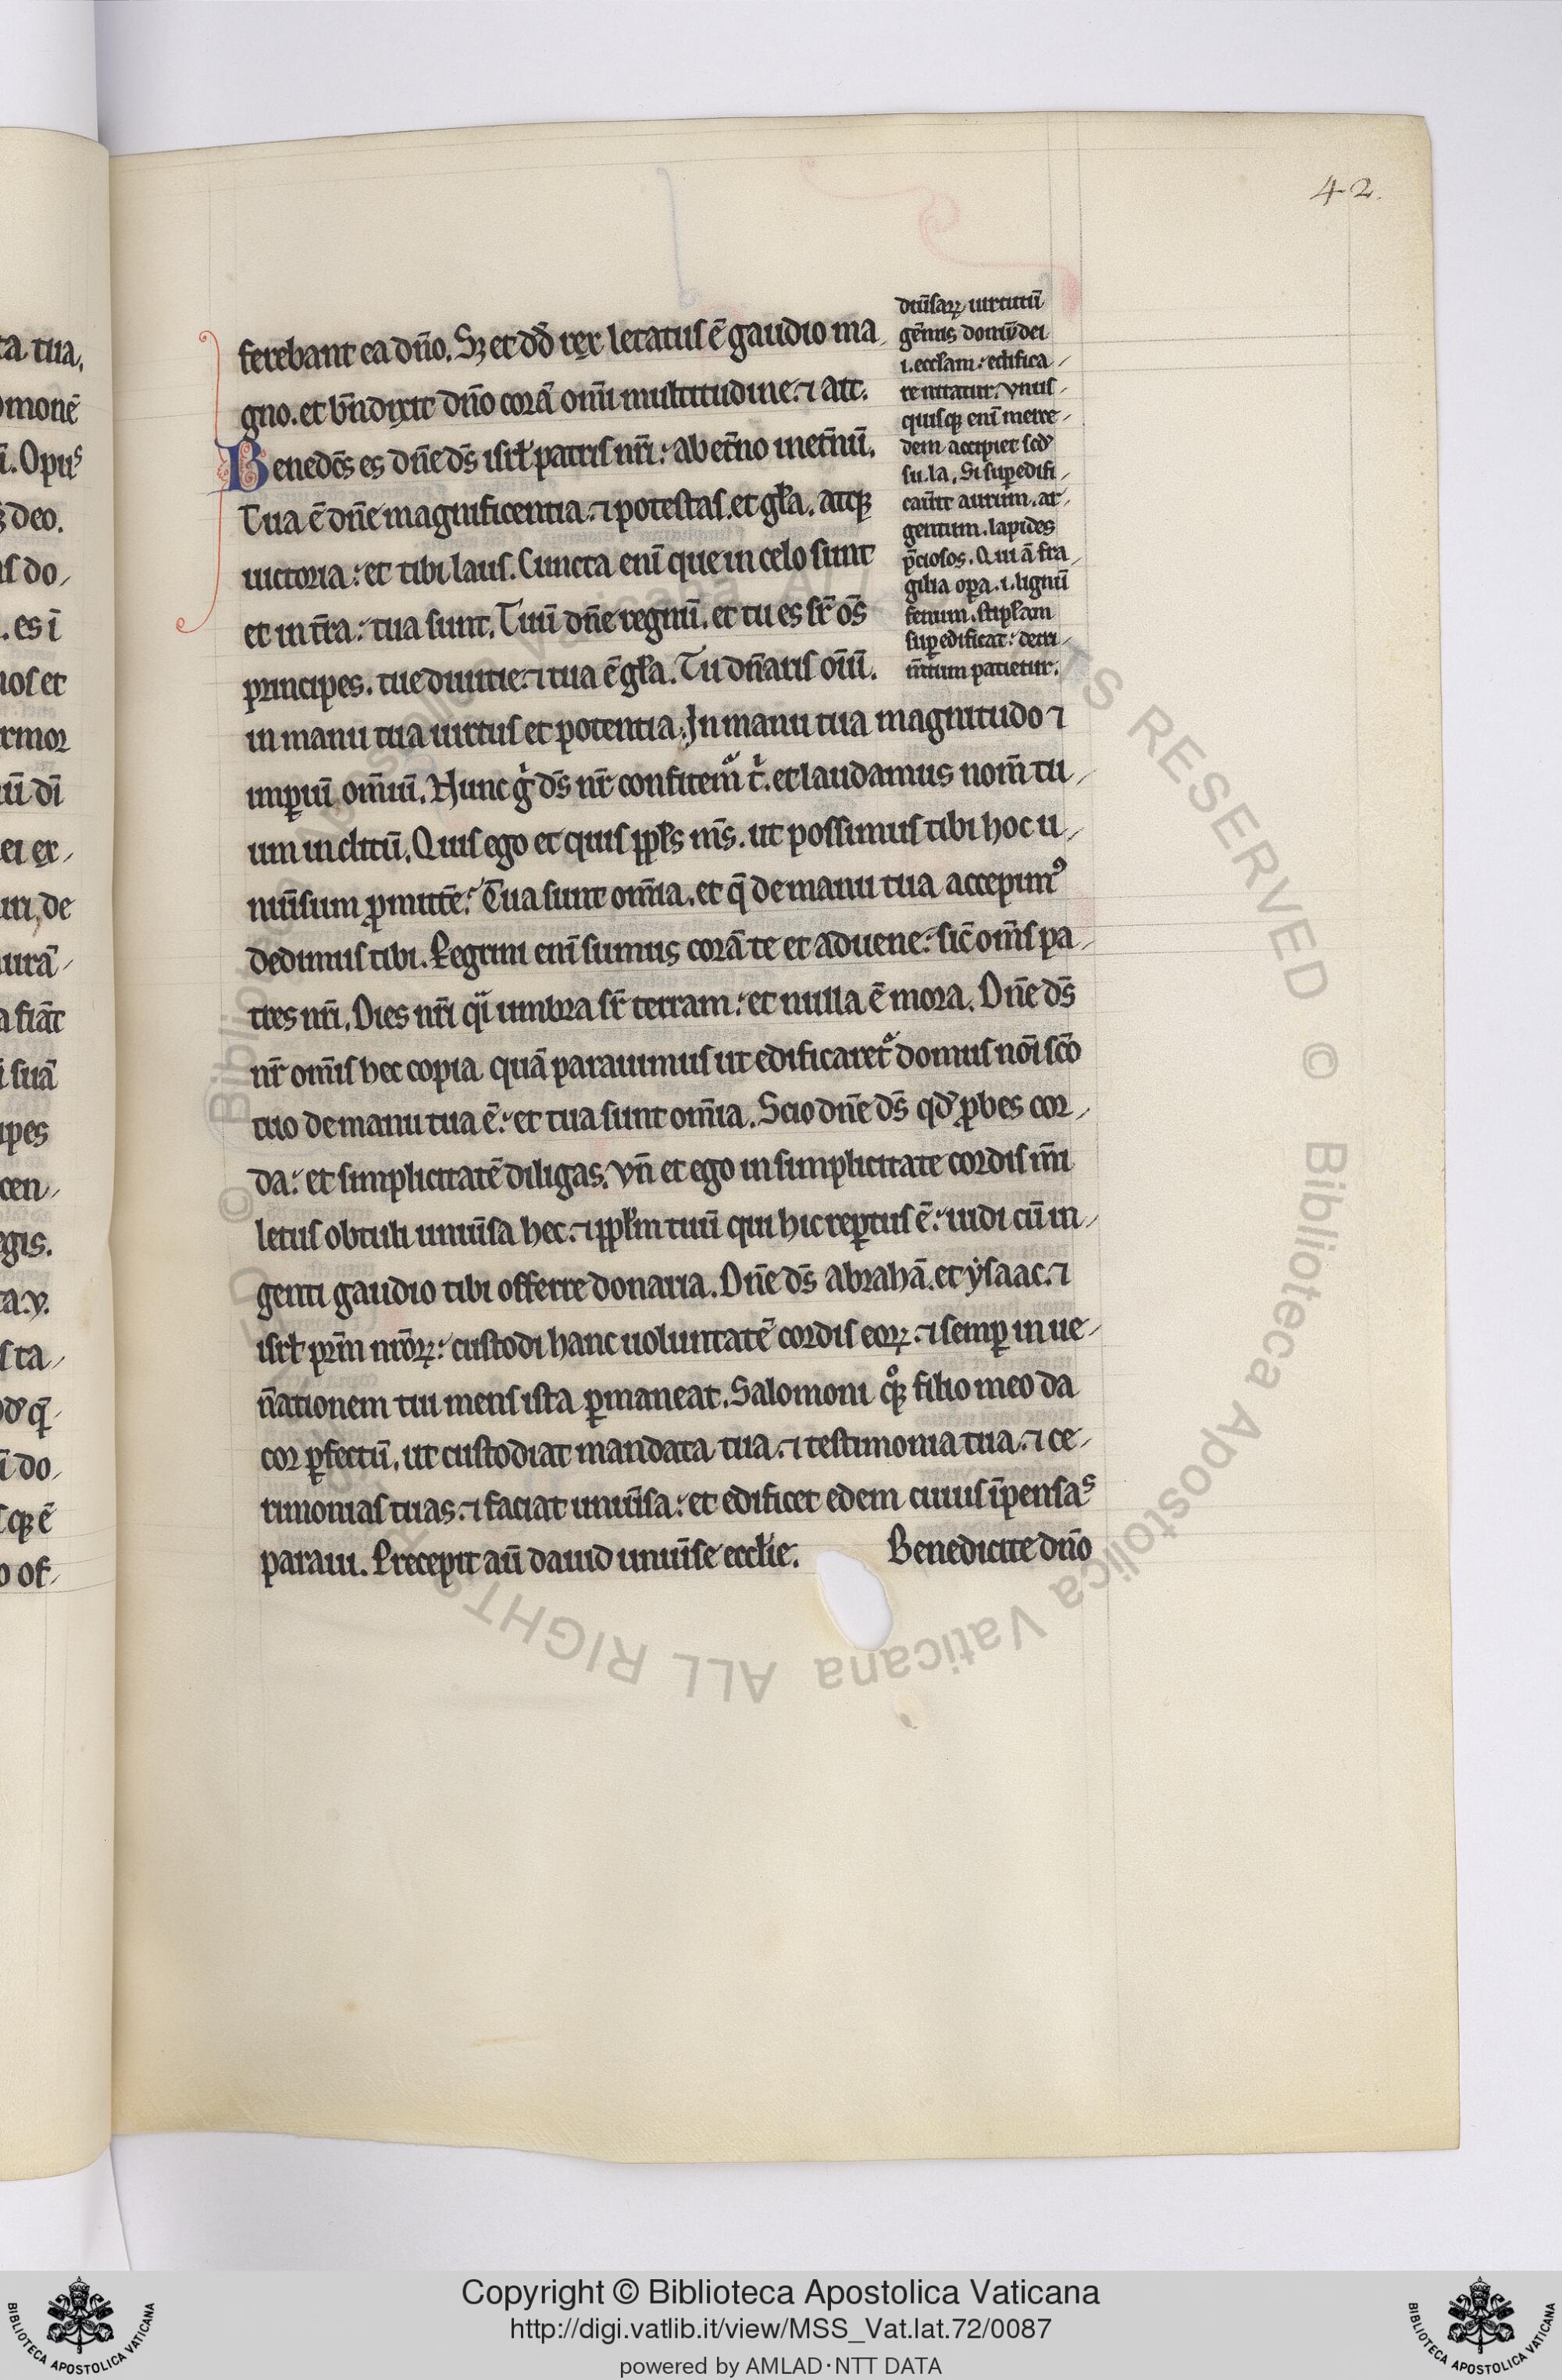 42.
ferebant ea dn̄o. Sꝫ et dd̄ rex letatus ē gaudio ma
gno. et bn̄dixit dn̄o corā om̄i multitudine. ⁊ ait.
Benedc̄s es dn̄e ds̄ isrł patris nr̄i: ab et̄no inet̄nū.
Tua ē dn̄e magnificentia. ⁊ potestas. et gła. atqꝫ
uictoria: et tibi laus. Cuncta enī que in celo sunt
et in tr̄a: tua sunt. Tuū dn̄e regnū. et tu es sr̄ os̄
principes. tue diuitie. ⁊ tua ē gła. Tu dn̄aris oīū.
in manu tua uirtus et potentia. In manu tua magnitudo ⁊
imꝑiū om̄iū. Nunc ġ ds̄ nr̄ confitem̃ t̓. et laudamus nom̄ tu
um inclitū. Quis ego et quis ppłs ms̄. ut possimus tibi hoc u
niūsum ꝓmitte᷑: Tua sunt om̄ia. et q̄ de manu tua accepimꝰ
dedimus tibi. Pegrini enī sumus corā te et aduene: sic̄ om̄s pa
tres nr̄i. Dies nr̄i qi̅ umbra sr̄ terram: et nulla ē mora. Dn̄e ds̄
nr̄ om̄is hec copia quā parauimus ut edificaret᷑ domus noī sc̄o
tuo de manu tua ē: et tua sunt om̄ia. Scio dn̄e ds̄ qd̓ ꝓbes cor
da: et simplicitatē diligas. Vn̄ et ego in simplicitate cordis m̄i
letus obtuli uniūsa hec. ⁊ ppłm tuū qui hic reꝑtus ē: uidi cū in
genti gaudio tibi offerre donaria. Dn̄e ds̄ abrahā. et ẏsaac. ⁊
isrł prm̄ nr̄oꝝ: custodi hanc uoluntatē cordis eoꝝ. ⁊ semꝑ in ue
n̄ationem tui mens ista ꝑmaneat. Salomoni qͦꝫ filio meo da
cor ꝑfectū. ut custodiat mandata tua. ⁊ testimonia tua. ⁊ ce
rimonias tuas. ⁊ faciat uniūsa: et edificet edem cuius īpensas
paraui. Precepit aū dauid uniūse eccłie. Benedicite dn̄o
diūsaꝝ uirtutū
gēmis domū dei
.i. eccłam: edifica
re nitatur. Vnus
quisqꝫ enī merce
dem accipiet scd̓
su. la. Si suꝑedifi
cau̅it aurum. ar
gentum. lapides
p̄ciosos. Qui ā fra
gilia oꝑa .i. lignū
fenum. stipłam
suꝑedificat: detri
m̄tum patietur.
Copyright © Biblioteca Apostolica Vaticana
http://digi.vatlib.it/view/MSS_Vat.lat.72/0087
powered by AMLAD·NTT DATA
BIBLIOTECA APOSTOLICA VATICANA
BIBLIOTECA APOSTOLICA VATICANA
© Biblioteca Apostolica Vaticana ALL RIGHTS RESERVED